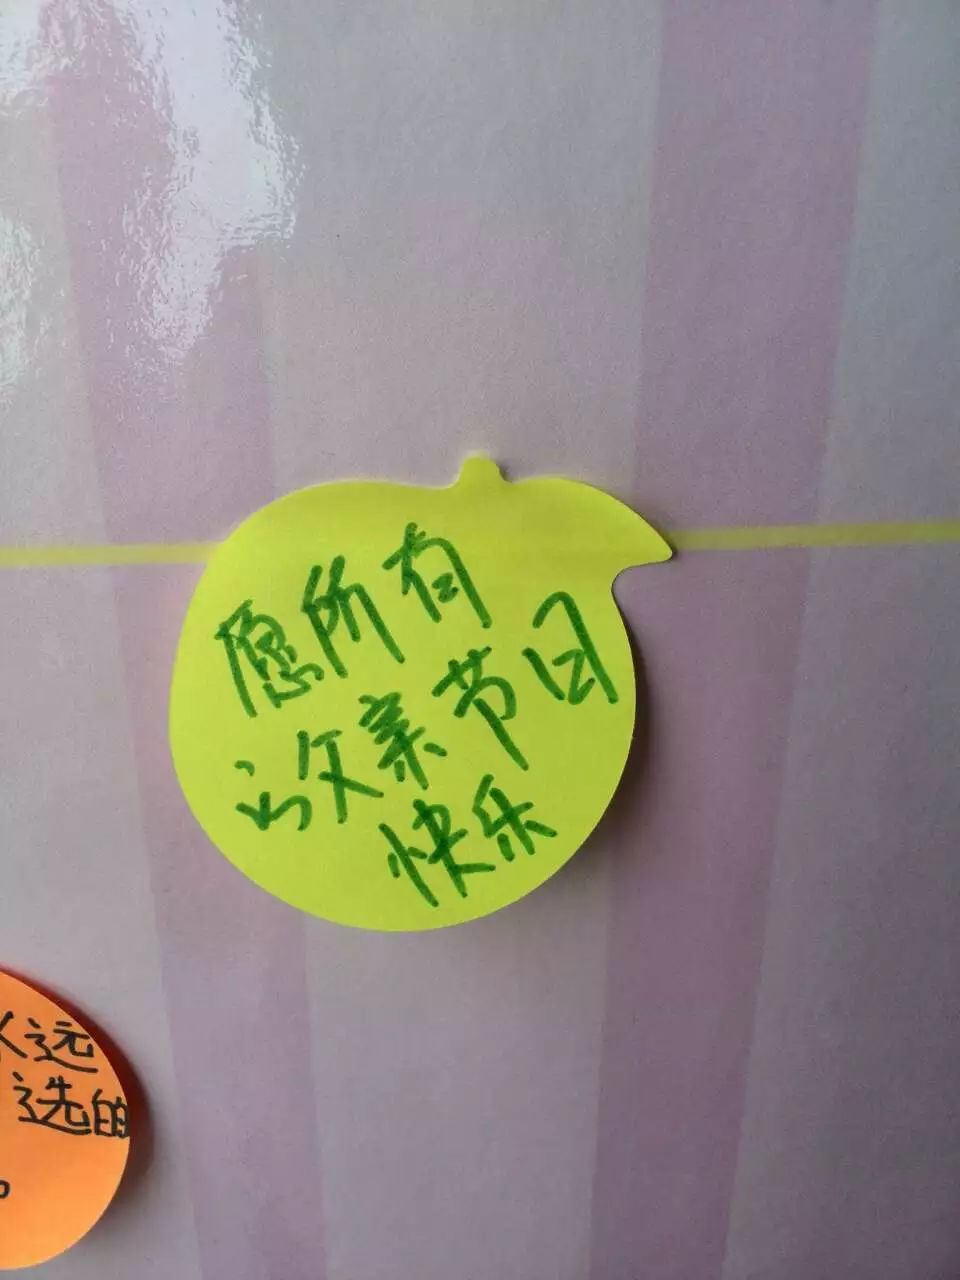 愿所有
父亲节日
快乐
远
选的
。